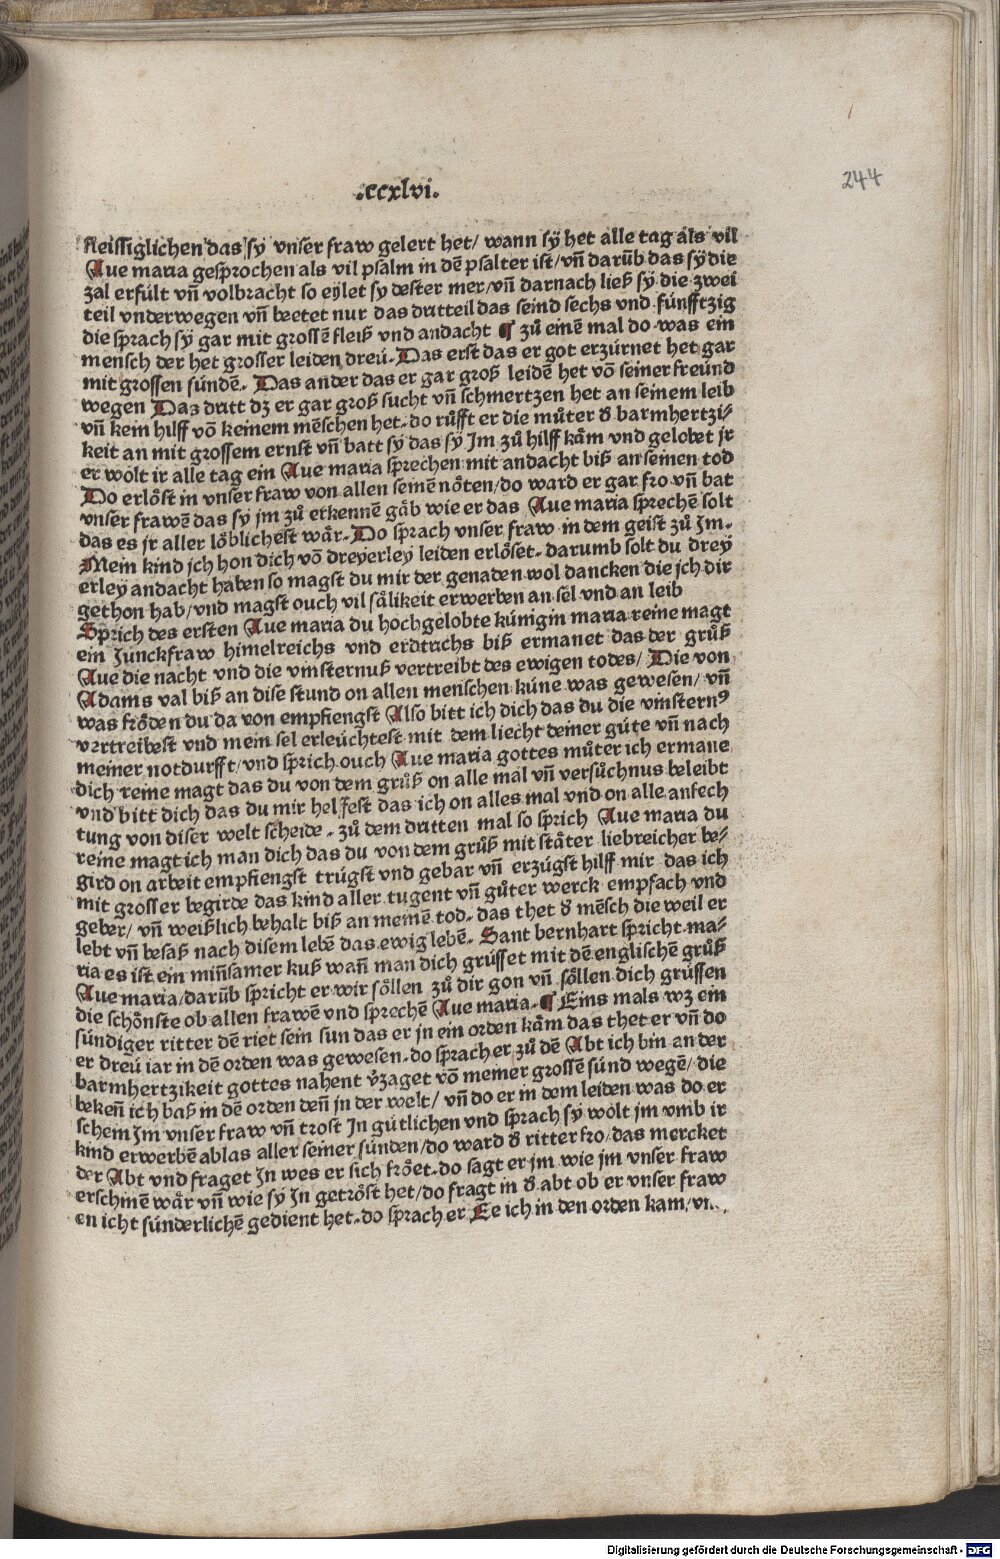 .ccxlvi.
244
fleissiglichen das sy vnser fraw gelert het/ wann sy het alle tag als vil
Aue maria gesprochen als vil psalm in dē psalter ist/ vn̄ darūb das sy die
zal erfült vn̄ volbracht so eylet sy dester mer/ vn̄ darnach ließ sy die zwei
teil vnderwegen vn̄ beetet nur das dritteil das seind sechs vnd fünfftzig
die sprach sy gar mit grossē fleiß vnd andacht ¶ zů einē mal do was ein
mensch der het grosser leiden dreü. Das erst das er got erzürnet het gar
mit grossen sündē. Das ander das er gar groß leidē het vō seiner freünd
wegen Das dritt dz er gar groß sucht vn̄ schmertzen het an seinem leib
vn̄ kein hilff vō keinem mēschen het. do růfft er die můter d̕ barmhertzi⸗
keit an mit grossem ernst vn̄ batt sy das sy Im zů hilff käm vnd gelobet jr
er wölt ir alle tag ein Aue maria sprechen mit andacht biß an seinen tod
Do erlößt in vnser fraw von allen seinē nöten/ do ward er gar fro vn̄ bat
vnser frawē das sy jm zů erkennē gäb wie er das Aue maria sprechē solt
das es jr aller löblichest wär. Do sprach vnser fraw in dem geist zů Im.
Mein kind jch hon dich vō dreyerley leiden erlöset. darumb solt du drey
erley andacht haben so magst du mir der genaden wol dancken die jch dir
gethon hab/ vnd magst ouch vil sälikeit erwerben an sel vnd an leib
Sprich des ersten Aue maria du hochgelobte künigin maria reine magt
ein Junckfraw himelreichs vnd erdtrichs biß ermanet das der grůß
Aue die nacht vnd die vinsternuß vertreibt des ewigen todes/ Die von
Adams val biß an dise stund on allen menschen küne was gewesen/ vn̄
was fröden du da von empfiengst Also bitt ich dich das du die vinsternꝰ
vertreibest vnd mein sel erleüchtest mit dem liecht deiner güte vn̄ nach
meiner notdurfft/ vnd sprich ouch Aue maria gottes můter ich ermane
dich reine magt das du von dem grůß on alle mal vn̄ versůchnus beleibt
vnd bitt dich das du mir helffest das ich on alles mal vnd on alle anfech
tung von diser welt scheide. zů dem dritten mal so sprich Aue maria du
reine magt ich man dich das du von dem grůß mit stäter liebreicher be⸗
gird on arbeit empfiengst trügst vnd gebar vn̄ erzügst hilff mir das ich
mit grosser begirde das kind aller tugent vn̄ gůter werck empfach vnd
geber/ vn̄ weißlich behalt biß an meinē tod. das thet d̕ mēsch die weil er
lebt vn̄ besaß nach disem lebē das ewig lebē. Sant bernhart spricht ma⸗
ria es ist ein miñsamer kuß wañ man dich grüsset mit dē englischē grůß
Aue maria/ darūb spricht er wir söllen zů dir gon vn̄ söllen dich grüssen
die schönste ob allen frawē vnd sprechē Aue maria. ¶ Eins mals wz ein
sündiger ritter dē riet sein sun das er jn ein orden käm das thet er vn̄ do
er dreü iar in dē orden was gewesen. do sprach er zů dē Abt ich bin an der
barmhertzikeit gottes nahent v̕zaget vō meiner grossē sünd wegē/ die
bekeñ ich baß in dē orden deñ jn der welt/ vn̄ do er in dem leiden was do er
schein Im vnser fraw vn̄ trost In gütlichen vnd sprach sy wölt jm vmb ir
kind erwerbē ablas aller seiner sünden/ do ward d̕ ritter fro/ das mercket
der Abt vnd fraget In wes er sich fröet. do sagt er jm wie jm vnser fraw
erschinē wär vn̄ wie sy In getröst het/ do fragt in d̕ abt ob er vnser fraw
en icht sünderlichē gedient het. do sprach er Ee ich in den orden kam/
Digitalisierung gefördert durch die Deutsche Forschungsgemeinschaft - DFG